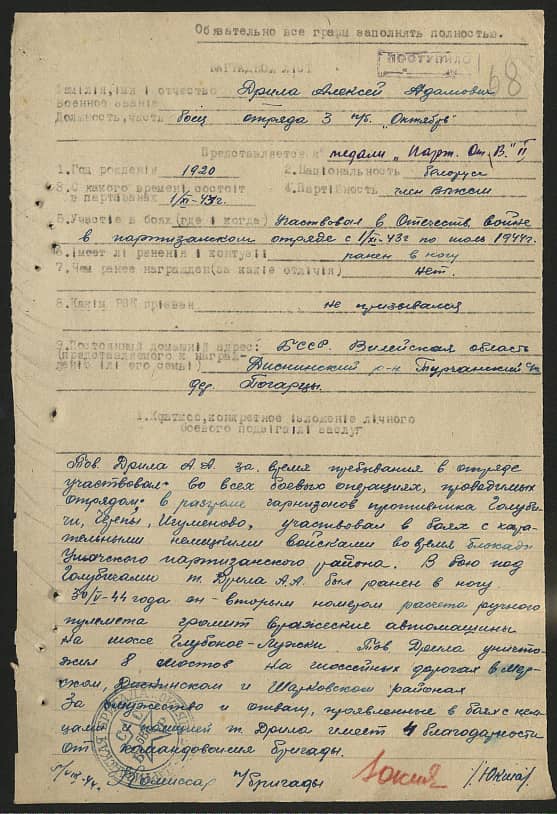 Обязательно все графы заполнять полностью.
ПОСТУПИЛО
68
НАГРАДНОЙ ЛИСТ
Фамилия, имя и отчество Дрила Алексей Адамович
Военное звание
Должность, часть боец отряда 3 п/б. "Октябрь"
Представляется к медали "Парт. От. В." II
1. Год рождения 1920 2. Национальность белорус
3. С какого времени состоит в партизанах 1/XI-43г. 4. Партийность член ВЛКСМ
5. Участие в боях (где и когда) Участвовал в Отечеств. войне
в партизанском отряде с 1/XI-43г по июль 1944г.
6. Имеет ли ранения и контузии ранен в ногу
7. Чем ранее награжден (за какие отличия) нет.
8. Каким РВК призван не призывался
9. Постоянный домашний адрес: БССР. Вилейская область
(представляемого к награж-
дению или его семьи) Диснинский р-н
дер. Погарцы.
1. Краткое, конкретное изложение личного
боевого подвига или заслуг
Тов Дрила А.А. за время пребывания в отряде
участвовал во всех боевых операциях, проводимых
отрядом: в разгроме гарнизонов противника Голуби-
чи, Игуменово, участвовал в боях с кара-
тельными немецкими войсками во время блокады
Ушачского партизанского района. В бою под
Голубичами т. Дрила А.А. был ранен в ногу.
44 года он - вторым номером расчета ручного
пулемета громит вражеские автомашины
на шоссе Глубокое-Лужки. Тов Дрила уничто-
жил 8 мостов на шоссейных дорогах в
Диснинском и Шарковском районах
За мужество и отвагу, проявленные в боях с
т. Дрила имеет 4 благодарности
от командования бригады.
Комиссар п/бригады /Юкша/.